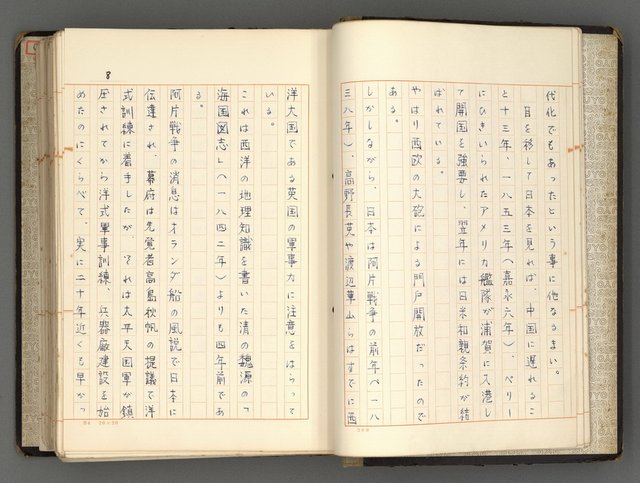 代化でもあったという事に他なるまい。
目を移して日本を見れば、中国に遅れるこ
と十三年、一八五三年(嘉永六年)、ペリー
にひきいられたアメリカ艦隊が浦賀に入港し
て開国を強要し、翌年には日米和親条約が結
ばれている。
やはり西欧の大砲による門戸開放だったので
ある。
しかしながら、日本は阿片戦争の前年(一八
三八年)、高野長英や渡辺華山らはすでに西
8
洋大国である英国の軍事力に注意をはらって
いる。
これは西洋の地理知識を書いた清の魏源の「
海国図志」(一八四二年)よりも四年前であ
る。
阿片戦争の消息はオランダ船の風説で日本に
伝達され、幕府は先覚者高島秋帆の提議で洋
式訓練に着手したが、それは太平天国軍が鎮
圧されてから洋式軍事訓練、兵器廠建設を始
めたのにくらべて、実に二十年近くも早かっ
B4 20×20